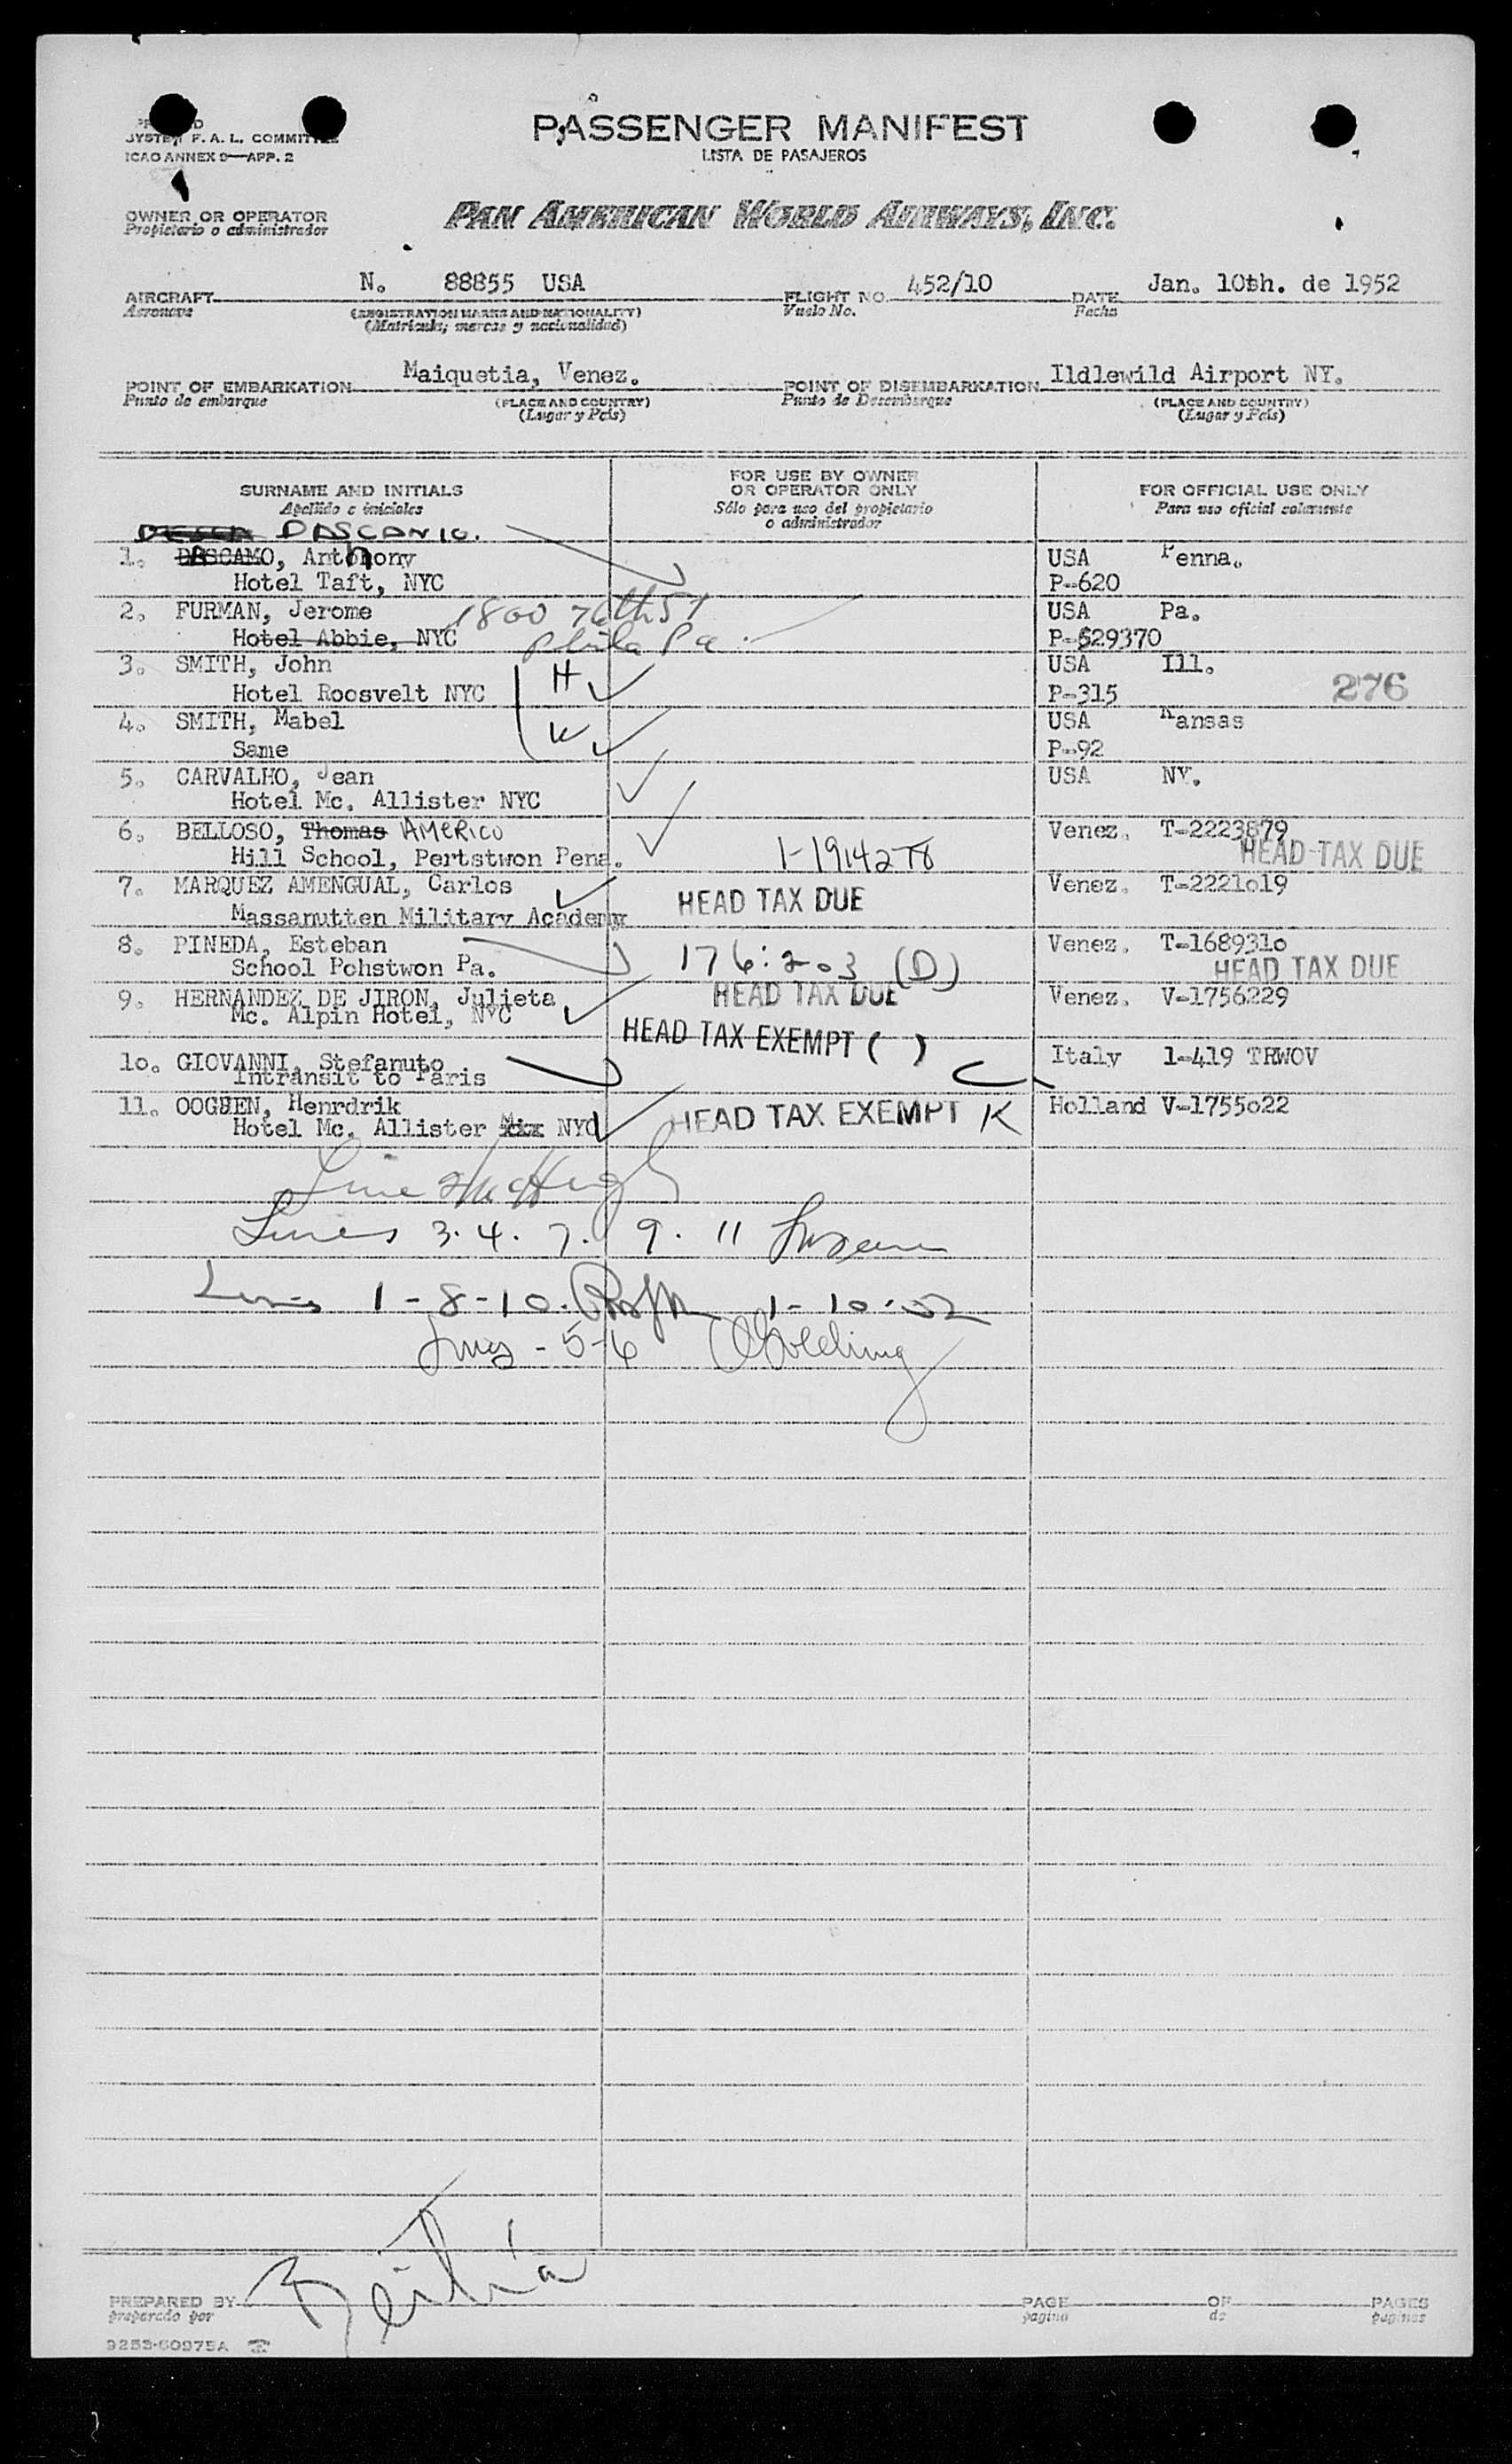 SYSTEM F. A. L. COMMITTEE
ICAO ANNEX 9—APP. 2
PASSENGER MANIFEST
LISTA DE PASAJEROS
OWNER OR OPERATOR
Propietario o administrador
PAN AMERICAN WORLD AIRWAYS, INC.
AIRCRAFT N. 88855 USA FLIGHT NO. 452/10 DATE Jan. 10th. de 1952
Aeronave (REGISTRATION MARKS AND NATIONALITY) Vuelo No. Fecha
(Matricula; marcas y nacionalidad)
POINT OF EMBARKATION Maiquetia, Venez. POINT OF DISEMBARKATION Ildlewild Airport NY.
Punto de embarque (PLACE AND COUNTRY) Punto de Desembarque (PLACE AND COUNTRY)
(Lugar y País) (Lugar y País)
SURNAME AND INITIALS FOR USE BY OWNER OR OPERATOR ONLY FOR OFFICIAL USE ONLY
Apellido e iniciales Sólo para uso del propietario o administrador Para uso oficial solamente
DASCANIO.
1. DASCAMO, Anthony USA Penna.
Hotel Taft, NYC P-620
2. FURMAN, Jerome 1800 76th St USA Pa.
Hotel Abbie, NYC Phila Pa. P-529370
3. SMITH, John H USA Ill.
Hotel Roosvelt NYC P-315 276
4. SMITH, Mabel W USA Kansas
Same P-92
5. CARVALHO, Jean USA NY.
Hotel Mc. Allister NYC
6. BELLOSO, Thomas AMERICO Venez. T-2223879
Hill School, Pertstwon Pena. 1-1914278 HEAD TAX DUE
7. MARQUEZ AMENGUAL, Carlos HEAD TAX DUE Venez. T-2221o19
Massanutten Military Academy
8. PINEDA, Esteban 176:203 (D) Venez. T-168931o
School Pohstwon Pa. HEAD TAX DUE
9. HERNANDEZ DE JIRON, Julieta HEAD TAX DUE Venez. V-1756229
Mc. Alpin Hotel, NYC
HEAD TAX EXEMPT ( )
1o. GIOVANNI, Stefanuto Italy 1-419 TRWOV
Intransit to Paris
11. OOGHEN, Henrdrik HEAD TAX EXEMPT K Holland V-1755o22
Hotel Mc. Allister NYC
Lines 3. 4. 7. 9. 11
Lines 1-8-10. 1-10-52
Lines - 5-6
PREPARED BY PAGE OF PAGES
preparado por pagina de paginas
9253-60975A